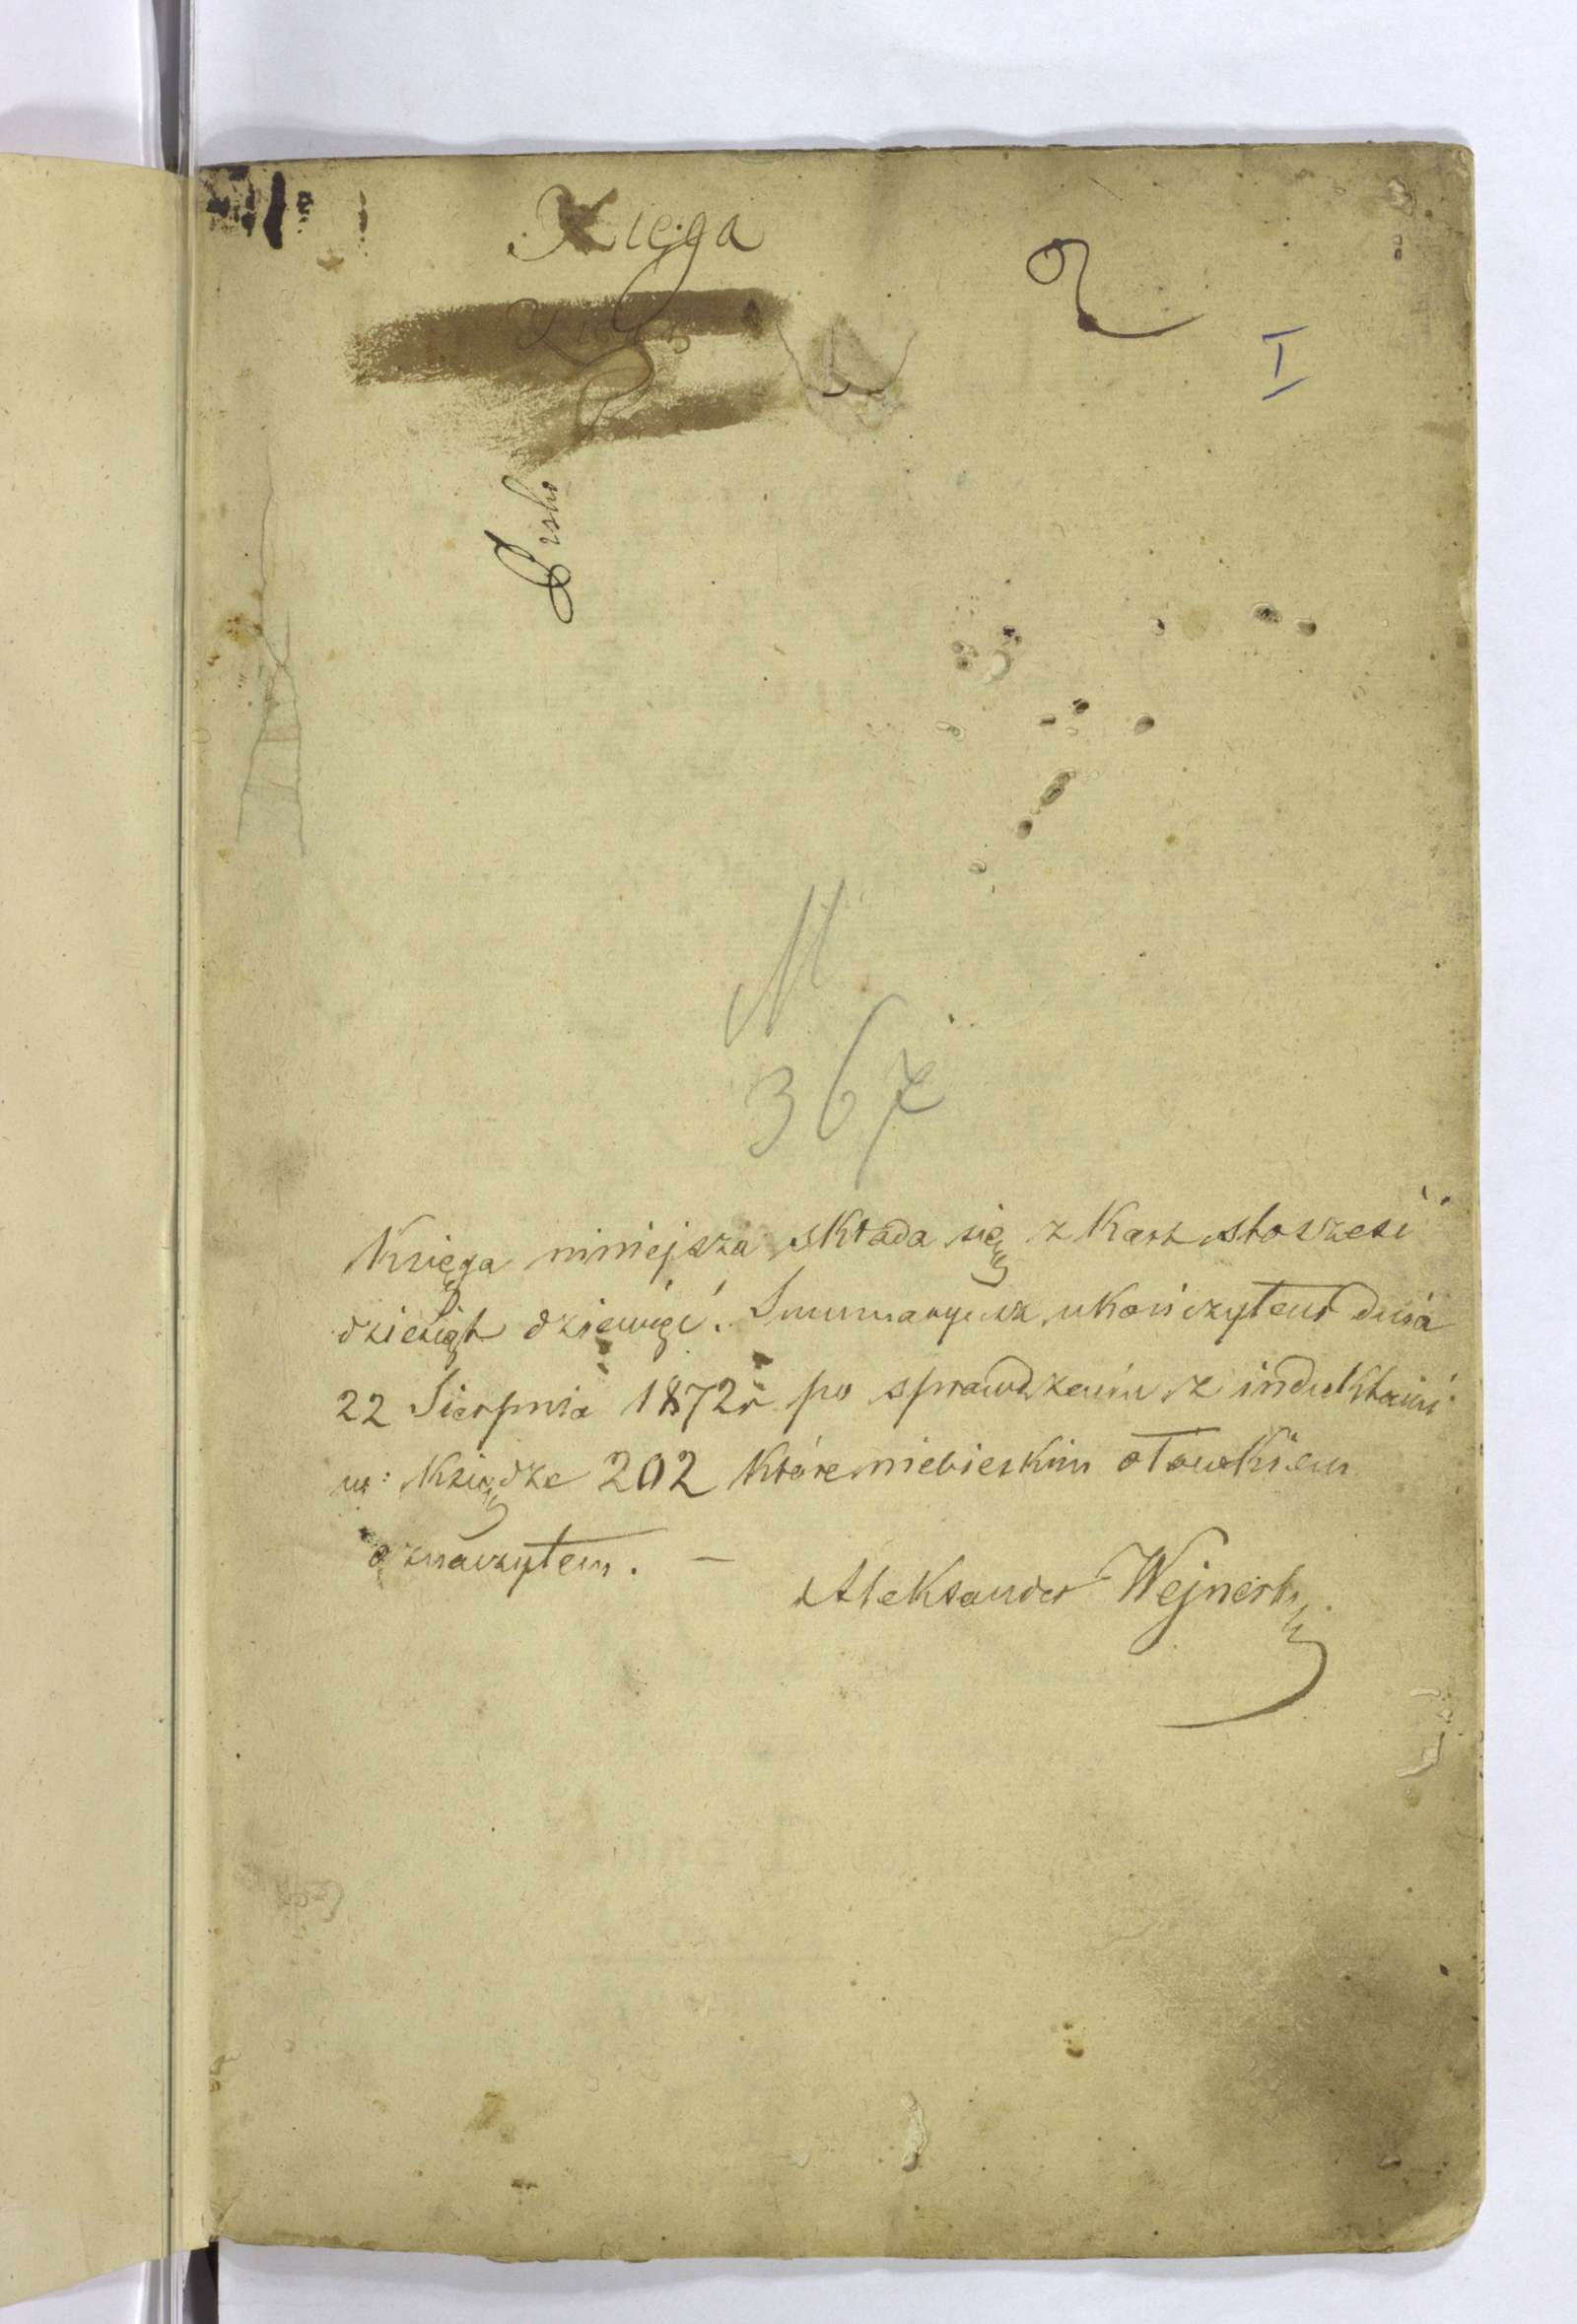 Xięga
2
I
M
367
Księga niniejsza składa się z Kart stosześć
dziesiąt dziewięć. Summaryusz ukończyłem dnia
22 Sierpnia 1872 r. po sprawdzeniu z induktami
w: Księdze 202 które niebieskim ołówkiem
oznaczyłem. —
Aleksander Wejnert